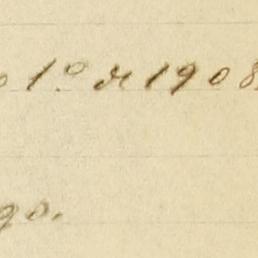 o 1.º de 1908
go.